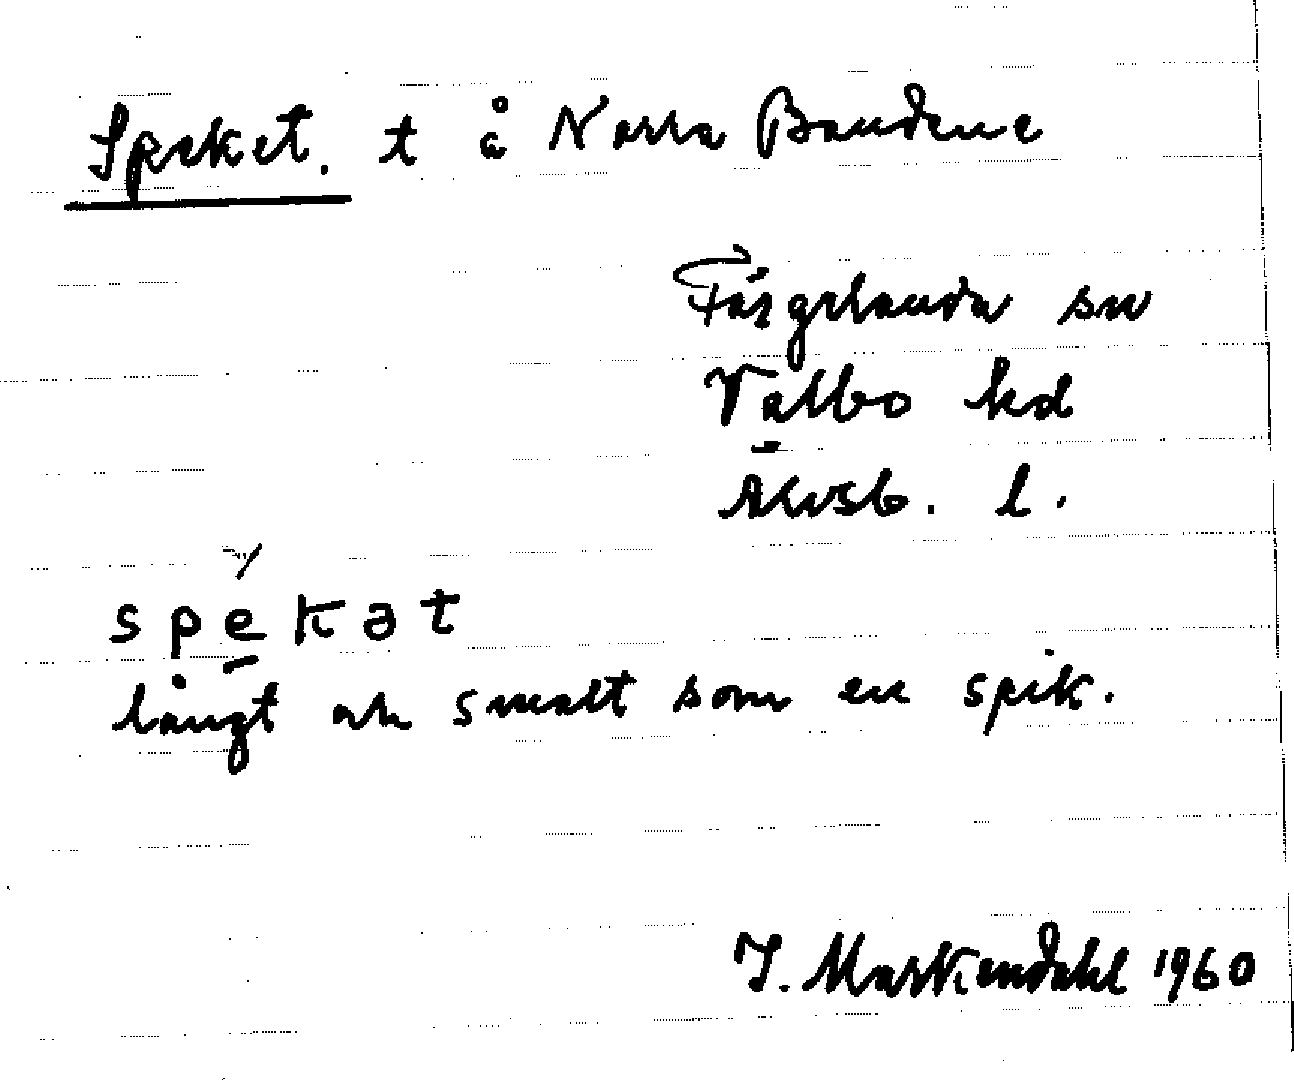 Speket. t å Norra Bandene
Färgelanda sn
Valbo hd
Älvsb. l.
spekət
långt och smalt som en spik.
J. Markendahl 1960